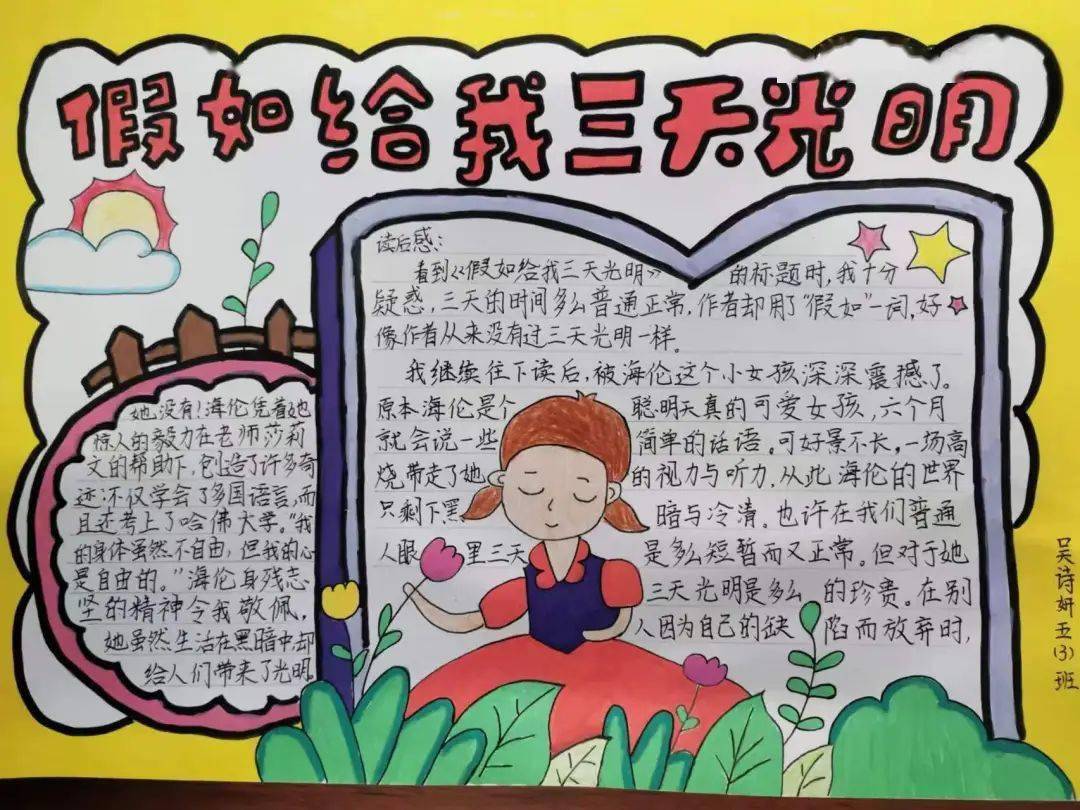 假如给我三天光明
读后感：
看到《假如给我三天光明》的标题时，我十分
疑惑，三天的时间多么普通正常，作者却用了“假如”一词，好
像作者从来没有过三天光明一样。
我继续往下读后，被海伦这个小女孩深深震撼了。
原本海伦是个聪明天真的可爱女孩，六个月
就会说一些简单的话语。可好景不长，一场高
烧带走了她的视力与听力，从此海伦的世界
只剩下黑暗与冷清。也许在我们普通
人眼里三天是多么短暂而又正常。但对于她
三天光明是多么的珍贵。在别
人因为自己的缺陷而放弃时，
她没有！海伦凭着她
惊人的毅力在老师莎莉
文的帮助下，创造了许多奇
迹：不仅学会了多国语言，而
且还考上了哈佛大学。“我
的身体虽然不自由，但我的心
是自由的。”海伦身残志
坚的精神令我敬佩，
她虽然生活在黑暗中，却
给人们带来了光明。
吴诗妍 五（3）班